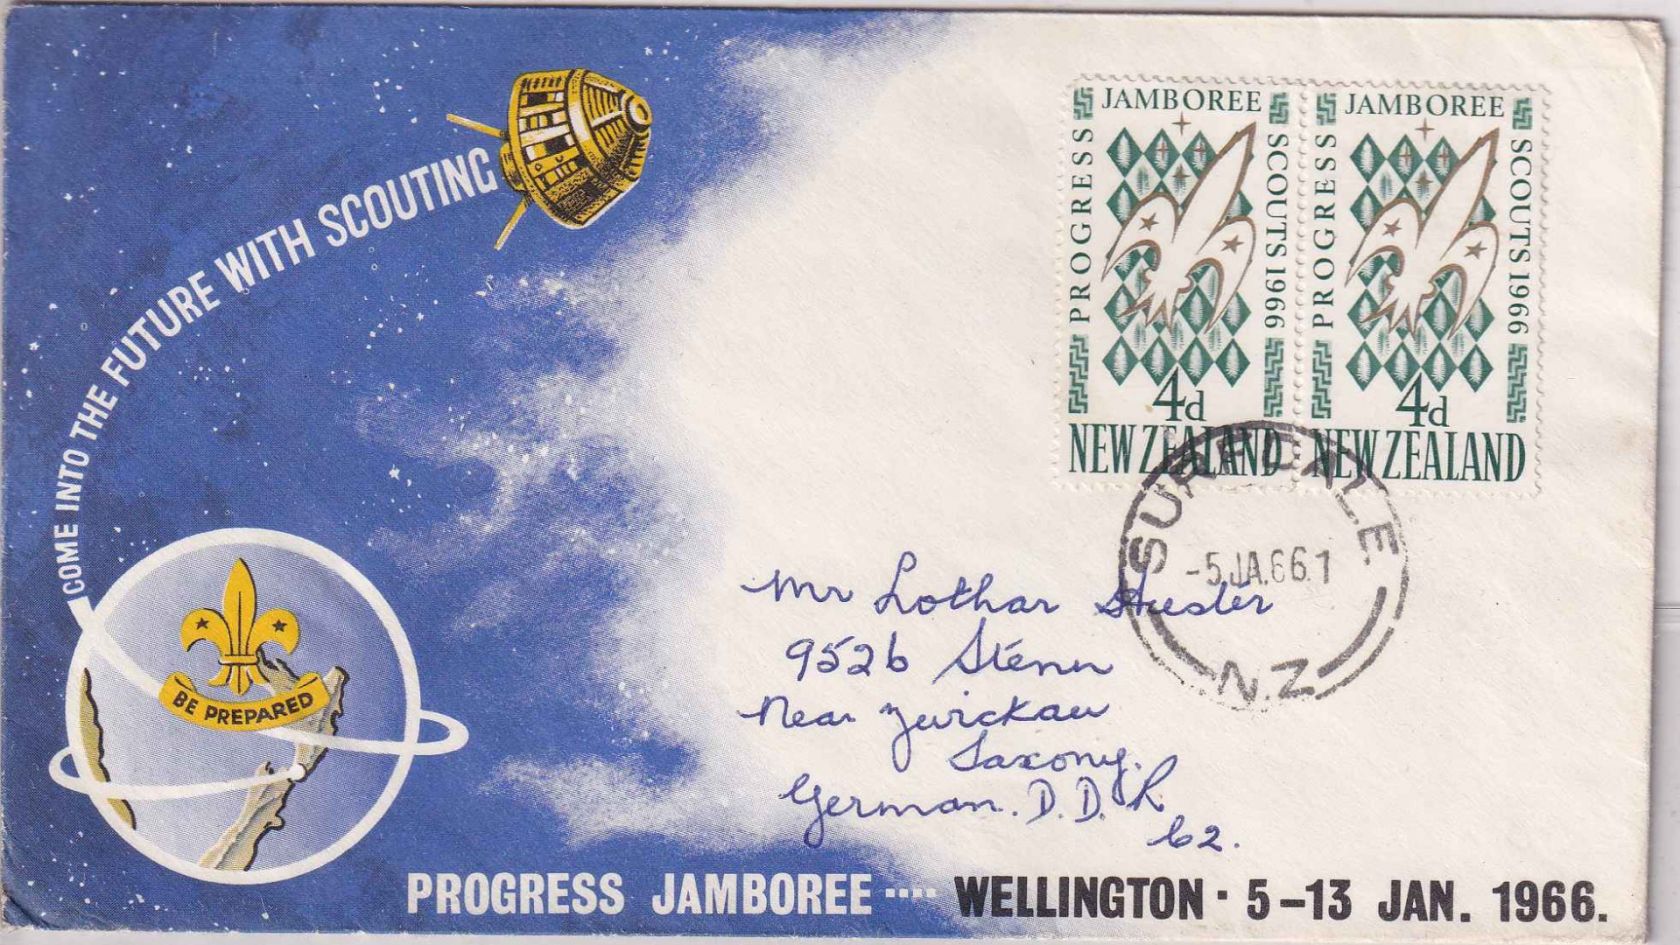 COME INTO THE FUTURE WITH SCOUTING
BE PREPARED
JAMBOREE
PROGRESS
SCOUTS 1966
4d
NEW ZEALAND
JAMBOREE
PROGRESS
SCOUTS 1966
4d
NEW ZEALAND
-5 JA.66.1
N.Z
Mr Lothar
9526 Stenn
Near Zwickau
Saxony.
German. D.D.R
62.
PROGRESS JAMBOREE .... WELLINGTON · 5-13 JAN. 1966.